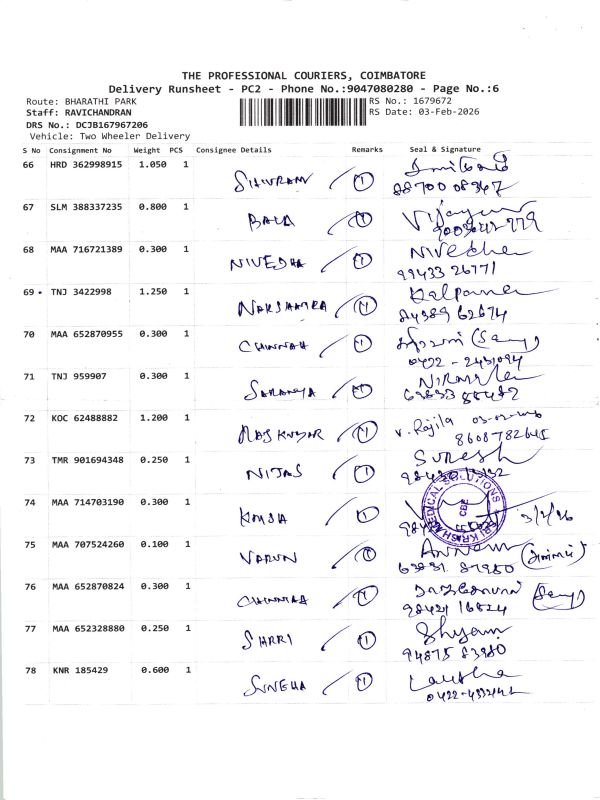 THE PROFESSIONAL COURIERS, COIMBATORE
Delivery Runsheet - PC2 - Phone No.:9047080280 - Page No.:6
Route: BHARATHI PARK
RS No.: 1679672
Staff: RAVICHANDRAN
RS Date: 03-Feb-2026
DRS No.: DCJB167967206
Vehicle: Two Wheeler Delivery
S No Consignment No Weight PCS Consignee Details Remarks Seal & Signature
66 HRD 362998915 1.050 1 SHIVRAM 1
88700 08367
67 SLM 388337235 0.800 1 BALA 1
68 MAA 716721389 0.300 1 NIVEDHA 1 Nivedha
99433 26771
69 TNJ 3422998 1.250 1 NAKSHATRA 1 Kalpana
84389 62674
70 MAA 652870955 0.300 1 CHINNAH 1
0422 - 2431094
71 TNJ 959907 0.300 1 SARANYA 1
72 KOC 62488882 1.200 1 RAJKUMAR 1 V. Rajila
8608782645
73 TMR 901694348 0.250 1 NIJAS 1 Suresh
74 MAA 714703190 0.300 1 1 3/2/26
SRI KRISHA MEDICAL SOLUTIONS
CBE
75 MAA 707524260 0.100 1 VARUN 1
63831 87980
76 MAA 652870824 0.300 1 1
98421 16824
77 MAA 652328880 0.250 1 SHRRI 1 Shyam
94875 83980
78 KNR 185429 0.600 1 SNNEHA 1